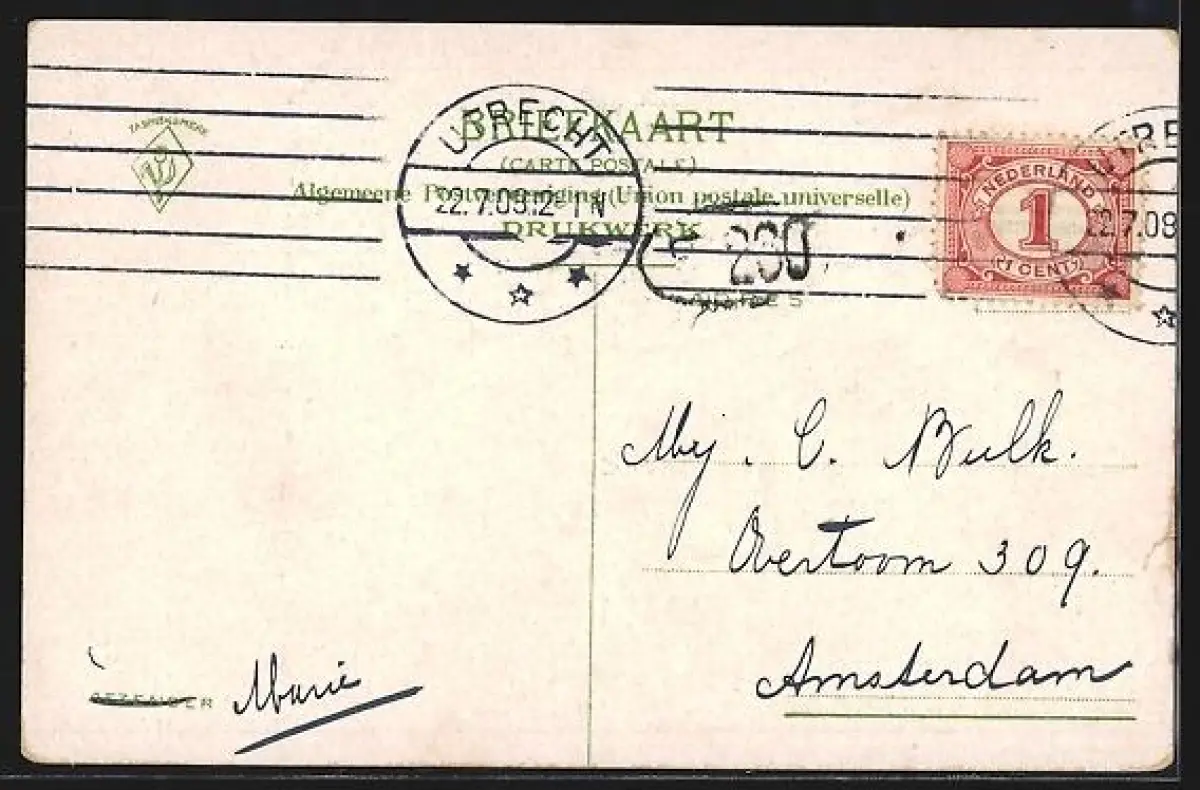 FABRIEKSMERK
UTRECHT
BRIEFKAART
(CARTE POSTALE)
Algemeene Postvereeniging (Union postale universelle)
22.7.09.12-1N
DRUKWERK
200
NEDERLAND
1
1 CENT
22.7.09
Mej. C. Bulk.
Overtoom 309.
Amsterdam
Marie